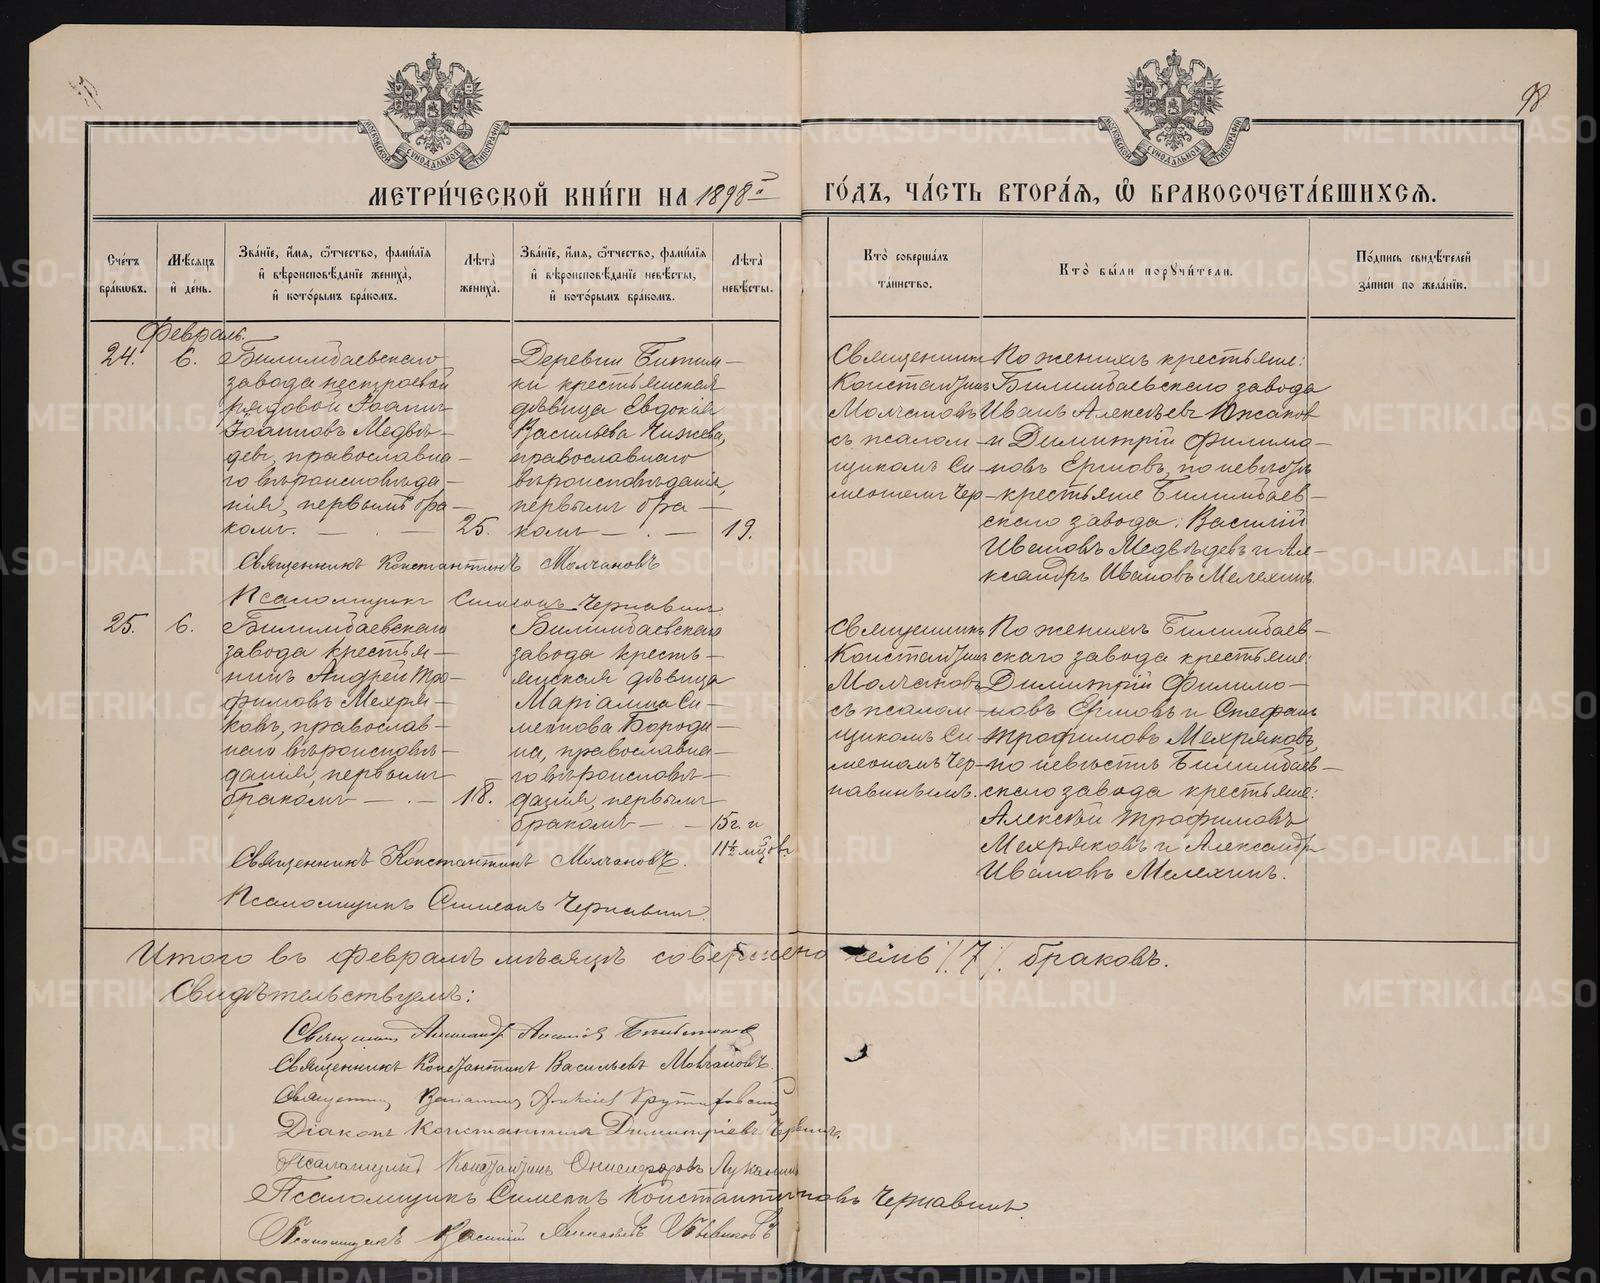 98
МОСКОВСКОЙ СѴНОДАЛЬНОЙ ТИПОГРАФІИ
МОСКОВСКОЙ СѴНОДАЛЬНОЙ ТИПОГРАФІИ
МЕТРИ́ЧЕСКОЙ КНИ́ГИ НА 1898 й ГО́ДЪ, ЧА́СТЬ ВТОРА́Ѧ, Ѽ БРАКОСОЧЕТА́ВШИХСѦ.
Сче́тъ бра́кѡвъ.
Мѣ́сѧцъ и҆ де́нь.
Зва́нїе, и҆́мѧ, ѻ҆́тчество, фами́лїѧ и҆ вѣроисповѣ́данїе жениха̀, и҆ кото́рымъ бра́комъ.
Лѣ́та жениха̀.
Зва́нїе, и҆́мѧ, ѻ҆́тчество, фами́лїѧ и҆ вѣроисповѣ́данїе невѣ́сты, и҆ кото́рымъ бра́комъ.
Лѣ́та невѣ́сты.
Кто̀ соверша́лъ та́инство.
Кто̀ бы́ли порꙋчи́тели.
По́дпись свидѣ́телей за́писи по жела́нїю.
Февраль.
24.
6.
Билимбаевскаго
завода нестроевой
рядовой Іоаннъ
Іоанновъ Медвѣ-
девъ, православна-
го вѣроисповѣда-
нія, первымъ бра-
комъ.
25.
Деревни Битим-
ки крестьянская
дѣвица Евдокія
Васильева Чижева,
православнаго
вѣроисповѣданія,
первымъ бра-
комъ
19.
Священникъ
Константинъ
Молчановъ
съ псалом-
щикомъ Си-
меономъ Чер-
По женихѣ крестьяне:
Билимбаевскаго завода
Иванъ Алексѣевъ Южаков
и Димитрій Филимо-
новъ Ершовъ, по невѣстѣ
крестьяне Билимбаев-
скаго завода: Василій
Ивановъ Медвѣдевъ и Але-
ксандръ Ивановъ Мелехинъ
Священникъ Константинъ Молчановъ
Псаломщикъ Симеонъ Чернавинъ
25.
6.
Билимбаевскаго
завода крестья-
нинъ Андрей Тро-
фимовъ Мехря-
ковъ, православ-
наго вѣроисповѣ-
данія, первымъ
бракомъ
18.
Билимбаевскаго
завода кресть-
янская дѣвица
Маріамна Си-
меонова Бороди-
на, православна-
го вѣроисповѣ-
данія, первымъ
бракомъ
15 г. и
11½ мѣсяцов.
Священникъ
Константинъ
Молчановъ
съ псалом-
щикомъ Си-
меономъ Чер-
навинымъ.
По женихѣ Билимбаев-
скаго завода крестьяне:
Димитрій Филимо-
новъ Ершовъ и Стефанъ
Трофимовъ Мехряковъ,
по невѣстѣ Билимбаев-
скаго завода крестьяне:
Алексѣй Трофимовъ
Мехряковъ и Александръ
Ивановъ Мелехинъ.
Священникъ Константинъ Молчановъ.
Псаломщикъ Симеонъ Чернавинъ.
Итого въ февралѣ мѣсяцѣ совершено семь ./.7./. браковъ.
Свидѣтельствуемъ:
Священникъ Александръ
Священникъ Константинъ Васильевъ Молчановъ.
Священникъ Веніаминъ Алексіевъ
Діаконъ Константинъ Димитріевъ
Псаломщикъ Константинъ Онисифоровъ Луканинъ
Псаломщикъ Симеонъ Константиновъ Чернавинъ.
Псаломщикъ Василій Алексѣевъ
METRIKI.GASO-URAL.RU